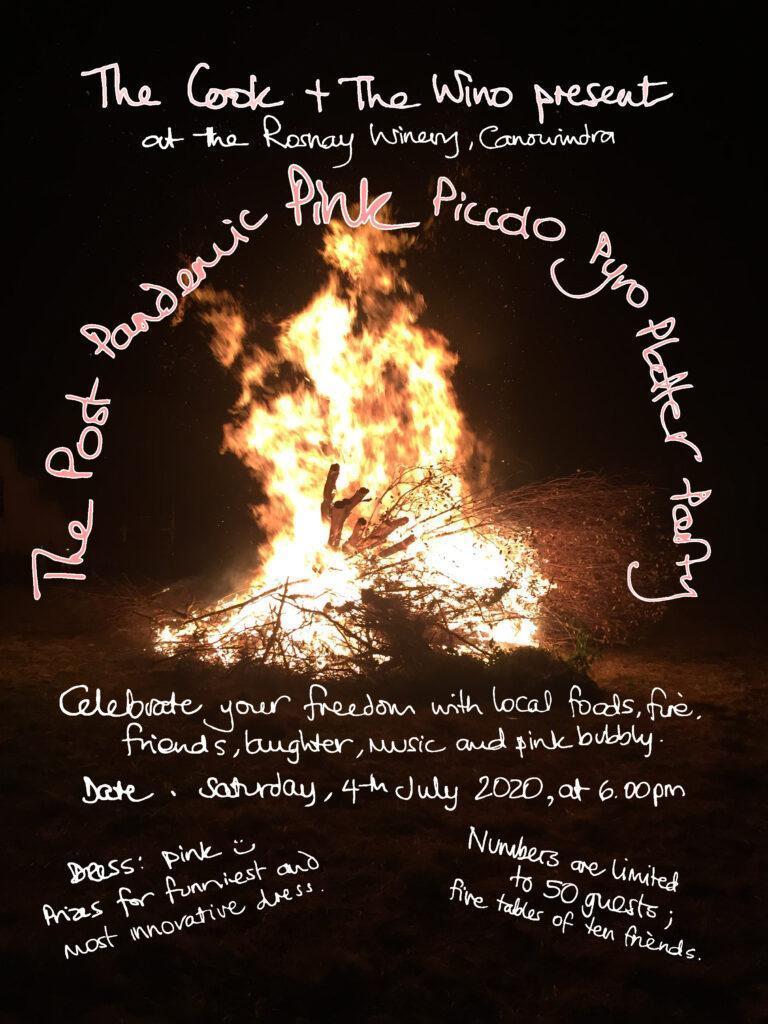 The Cook + The Wino present
at the Rosnay Winery, Canowindra
The Post Pandemic Pink Piccolo Pyro Platter Party
Celebrate your freedom with local foods, fire,
friends, laughter, music and pink bubbly.
Date. Saturday, 4th July 2020, at 6.00pm
Dress: pink ☺
Prizes for funniest and
most innovative dress.
Numbers are limited
to 50 guests;
five tables of ten friends.